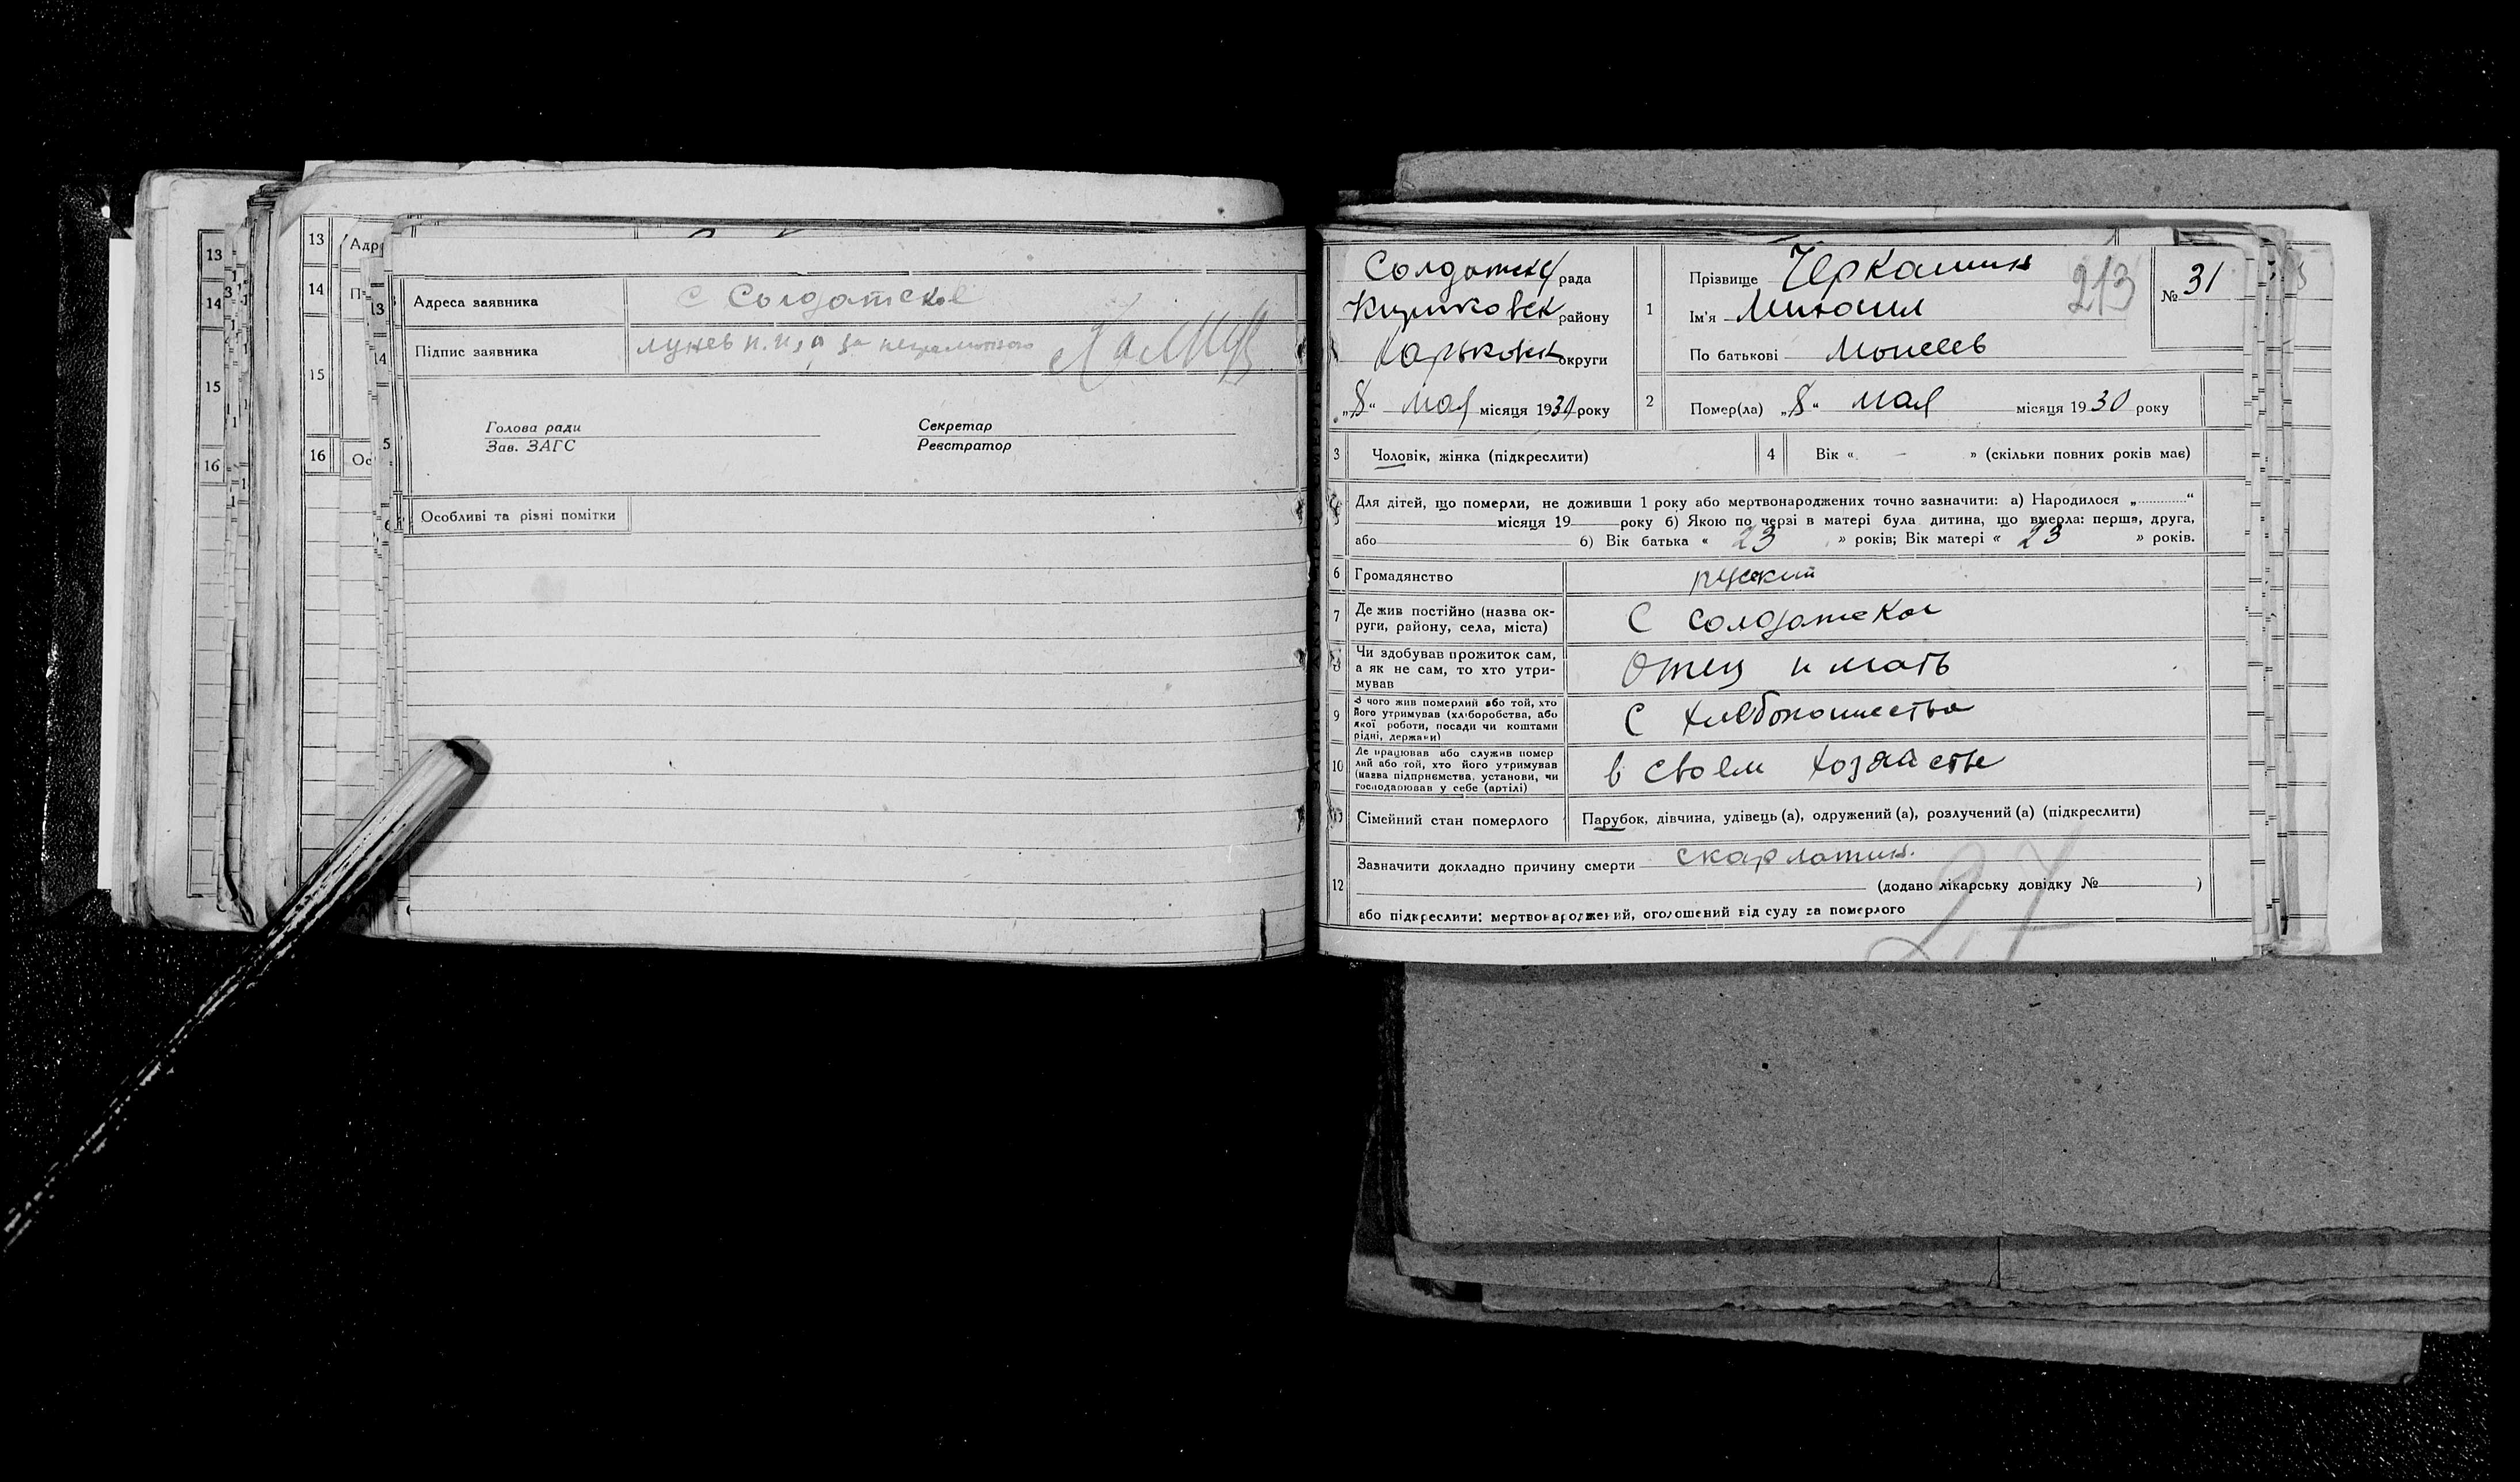 13
14
15
16
13
14
15
16
Адр
П
Ос
13
14
Адреса заявника
с Солдатское
Підпис заявника
лунев н.н, а за неграмотного
Голова ради
Зав. ЗАГС
Секретар
Реєстратор
Особливі та різні помітки
Солдатск рада
району
Харьковск округи
„8“ мая місяця 1930 року
1
Прізвище Черкашин
Ім'я Михаил
По батькові Моисеев
213
№ 31
2
Помер(ла) „8“ мая місяця 1930 року
3
Чоловік, жінка (підкреслити)
4
Вік « – » (скільки повних років має)
Для дітей, що померли, не доживши 1 року або мертвонароджених точно зазначити: а) Народилося „............“
місяця 19 року б) Якою по черзі в матері була дитина, що вмерла: перша, друга,
або б) Вік батька « 23 » років; Вік матері « 23 » років.
6
Громадянство
руский
7
Де жив постійно (назва ок-
руги, району, села, міста)
С Солдатское
Чи здобував прожиток сам,
а як не сам, то хто утри-
мував
Отец и мать
9
З чого жив померлий або той, хто
його утримував (хліборобства, або
якої роботи, посади чи коштами
рідні, держави)
С хлебопашества
10
Де працював або служив помер
лий або той, хто його утримував
(назва підприємства, установи, чи
господарював у себе (артілі)
в своем хозяйстве
Сімейний стан померлого
Парубок, дівчина, удівець (а), одружений (а), розлучений (а) (підкреслити)
12
Зазначити докладно причину смерти скарлатин.
(додано лікарську довідку № )
або підкреслити: мертвонароджений, оголошений від суду за померлого
27